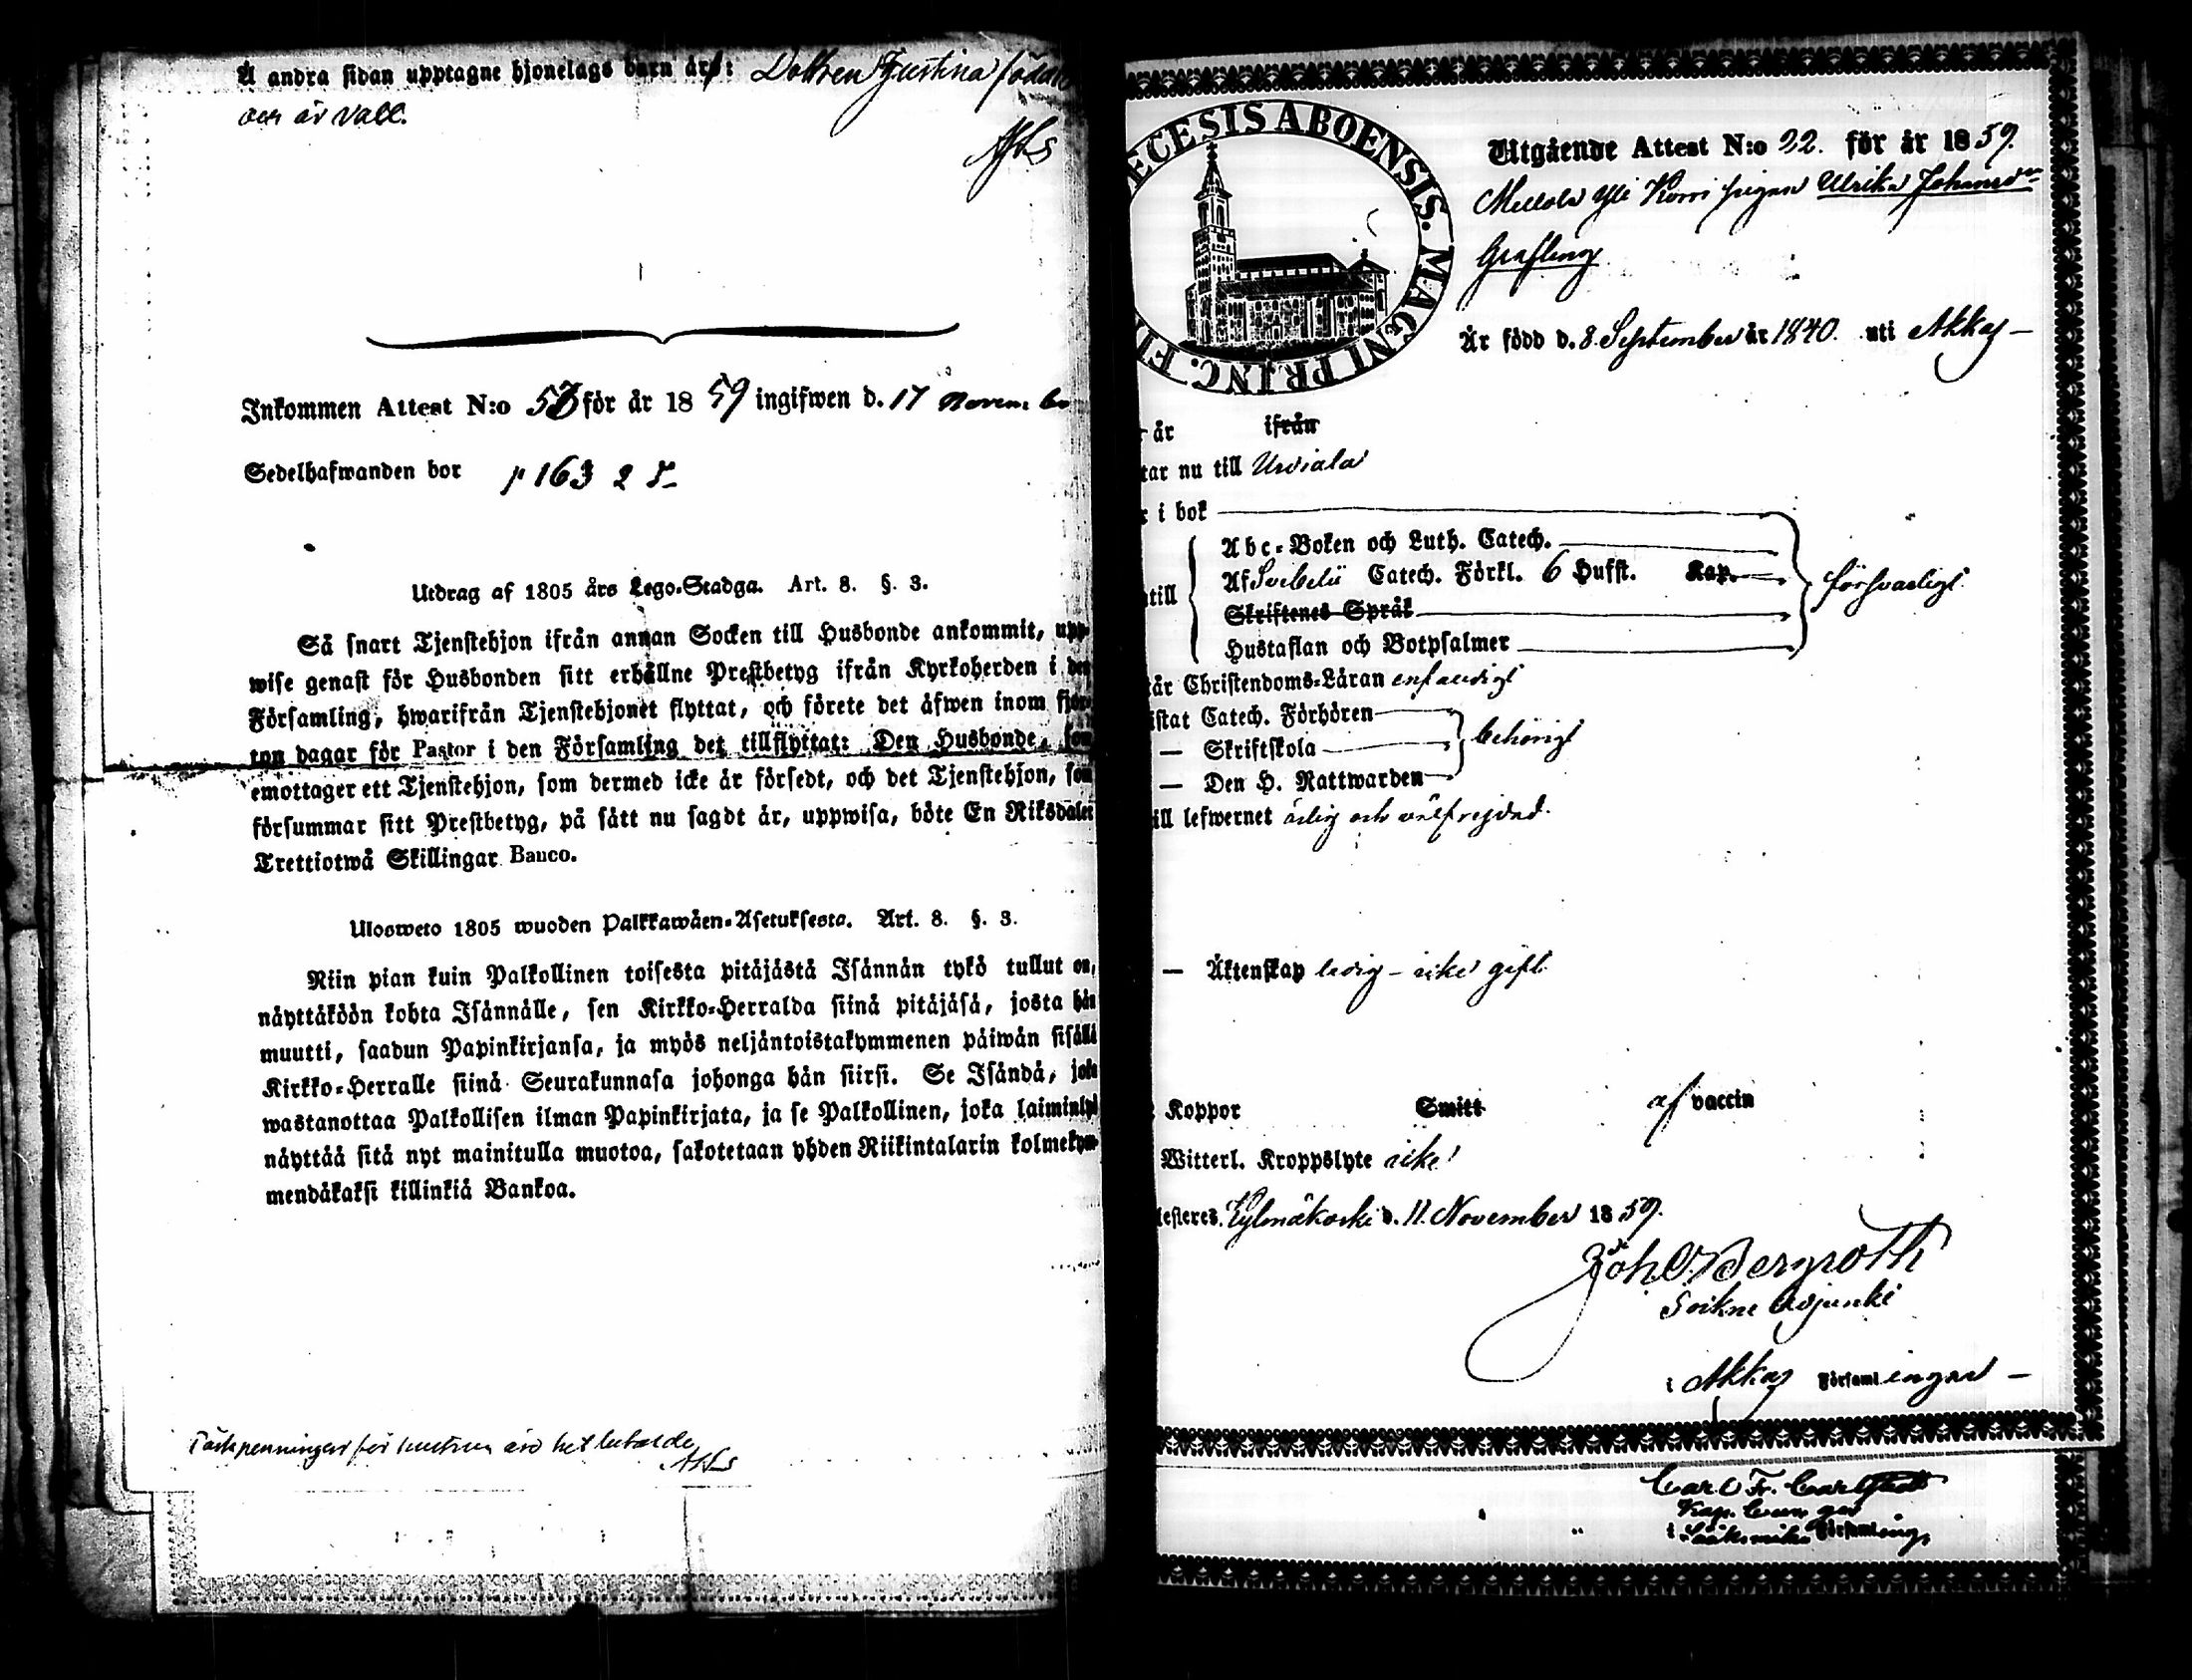 Å andra sidan upptagne hjonelags barn är: Dottren Justina född
och är Vacc.
Inkommen Attest N:o 53 för år 1859 ingifwen d. 17 Novemb
Sedelhafwanden bor p 163 2 
Utdrag af 1805 års Lego-Stadga. Art. 8. §. 3.
Så snart Tjenstehjon ifrån annan Socken till Husbonde ankommit, upp-
wise genast för Husbonden sitt erhållne Prestbetyg ifrån Kyrkoherden i den
Församling, hwarifrån Tjenstehjonet flyttat, och förete det äfwen inom fjor-
ton dagar för Pastor i den Församling det tillflyttat: Den Husbonde, som
emottager ett Tjenstehjon, som dermed icke är försedt, och det Tjenstehjon, som
försummar sitt Prestbetyg, på sätt nu sagdt är, uppwisa, böte En Riksdaler
Trettiotwå Skillingar Banco.
Ulosweto 1805 wuoden Palkkawäen-Asetuksesta. Art. 8. §. 3.
Niin pian kuin Palkollinen toisesta pitäjästä Isännän tykö tullut on,
näyttäköön kohta Isännälle, sen Kirkko-Herralda siinä pitäjäsä, josta hän
muutti, saadun Papinkirjansa, ja myös neljäntoistakymmenen päiwän sisällä
Kirkko-Herralle siinä Seurakunnasa johonga hän siirsi. Se Isändä, joka
wastanottaa Palkollisen ilman Papinkirjata, ja se Palkollinen, joka laiminlyö
näyttää sitä nyt mainitulla muotoa, sakotetaan yhden Riikintalarin kolmekym-
mendäkaksi killinkiä Bankoa.
ECESIS ABOENSIS. MAGNI PRINC. FI
Utgående Attest N:o 22. för år 1859.
Mellola Yli Korri pigan Ulrika Johansdr
Grafling
Är född d. 8. September år 1840. uti Akkas
år ifrån
tar nu till Urdiala
i bok
Abc-Boken och Luth. Catech.
Af Svebelii Catech. Förkl. 6 Hufst. Kap.
till
försvarligt
Skriftenes Språk
Hustaflan och Botpsalmer
tår Christendoms-Läran enfaldigt
istat Catech. Förhören
— Skriftskola
behörigt
— Den H. Nattwarden
ill lefwernet ärlig och välfrejdad.
— Äktenskap ledig – icke gift
Koppor Smitt af vaccin
Witterl. Kroppslyte icke
testeres. Kylmäkoski d. 11. November 1859.
Joh O. Bergroth
Sockne Adjunkt
i Akkas Församlingar
Carl Fr. Carlstedt
Kap.
i Sääksmäki Församling